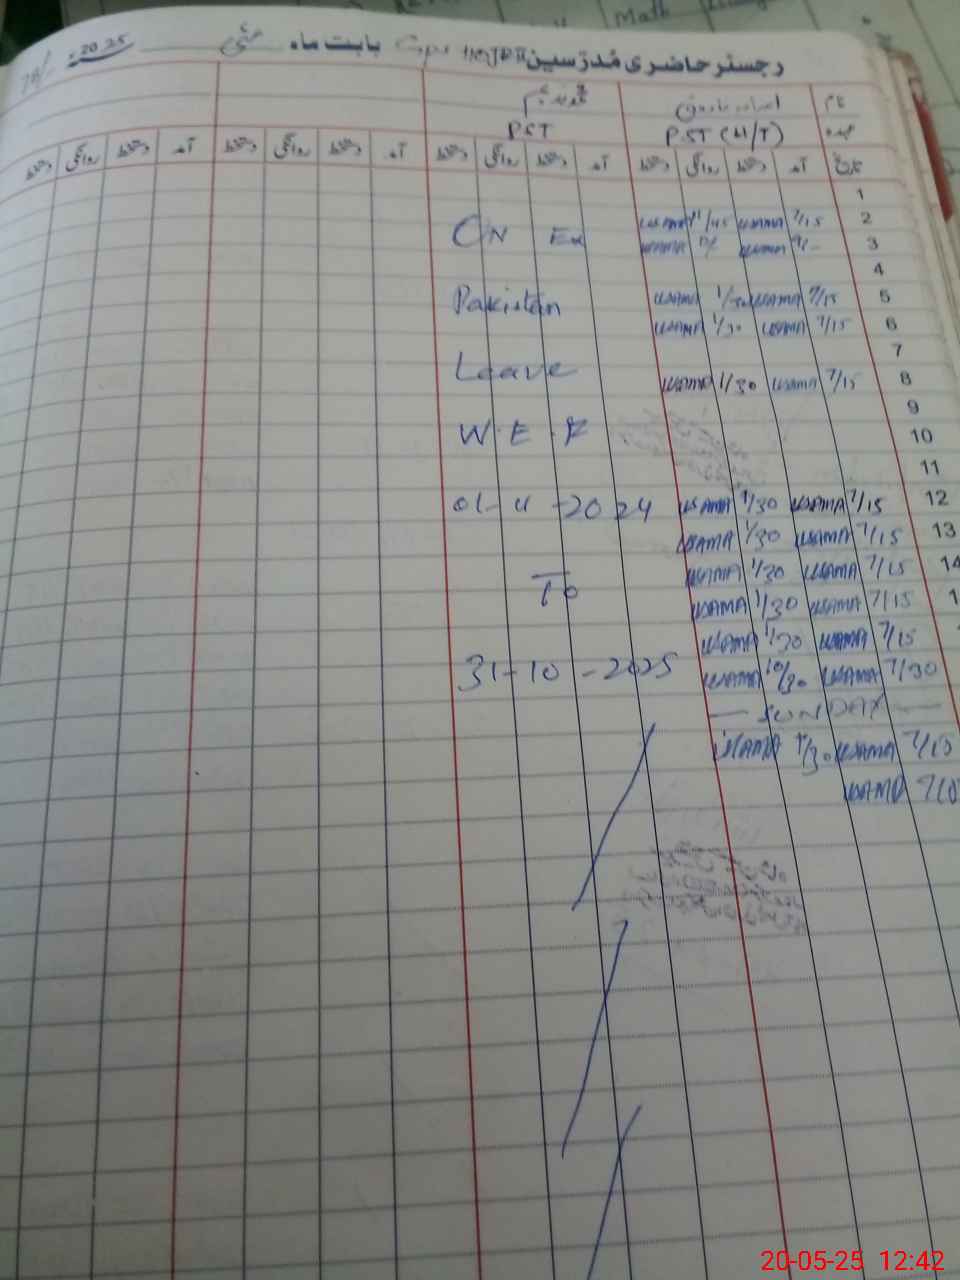 Math
رجسٹر حاضری مُدرّسین GPS بابت ماہ مئی 2025ء
نام
عہدہ PST (H/T) PST
تاریخ آمد دستخط روانگی دستخط آمد دستخط روانگی دستخط آمد دستخط روانگی دستخط آمد دستخط روانگی دستخط
1
2 7/15 USAMA 11/45 USAMA
3 USAMA USAMA
4
5 7/15 USAMA 1/30 USAMA
6 7/15 USAMA 1/30 USAMA
7
8 7/15 USAMA 1/30 USAMA
9
10
11
12 7/15 USAMA 1/30 USAMA
13 7/15 USAMA 1/30 USAMA
14 7/15 USAMA 1/30 USAMA
7/15 USAMA 1/30 USAMA
7/15 USAMA 1/30 USAMA
7/30 USAMA 10/30 USAMA
— SUNDAY —
7/15 USAMA USAMA
USAMA
ON Ex
Pakistan
Leave
W.E.F
01-11-2024
To
31-10-2025
20-05-25 12:42